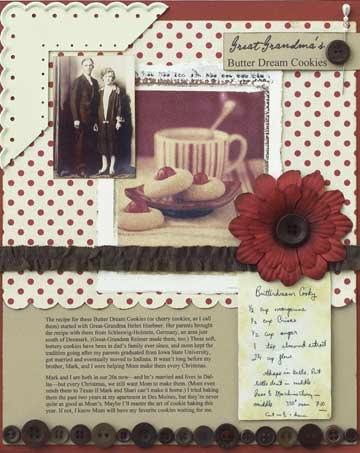 Great Grandma's
Butter Dream Cookies
The recipe for these Butter Dream Cookies (or cherry cookies, as I call
them) started with Great-Grandma Helet Huebner. Her parents brought
the recipe with them from Schleswig-Holstein, Germany, an area just
south of Denmark. (Great-Grandma Reimer made them, too.) These soft,
buttery cookies have been in dad's family ever since, and mom kept the
tradition going after my parents graduated from Iowa State University,
got married and eventually moved to Indiana. It wasn't long before my
brother, Mark, and I were helping Mom make them every Christmas.
Mark and I are both in our 20s now—and he's married and lives in Dal-
las—but every Christmas, we still want Mom to make them. (Mom even
sends them to Texas if Mark and Shari can't make it home.) I tried baking
them the past two years at my apartment in Des Moines, but they're never
quite as good as Mom's. Maybe I'll master the art of cookie baking this
year. If not, I know Mom will have my favorite cookies waiting for me.
Butterdream Cooky
½ cup margarine
½ cup Crisco
½ cup sugar
1 tsp almond extract
2¼ cup flour
Shape in balls. Put
little dent in middle
middle 350° oven